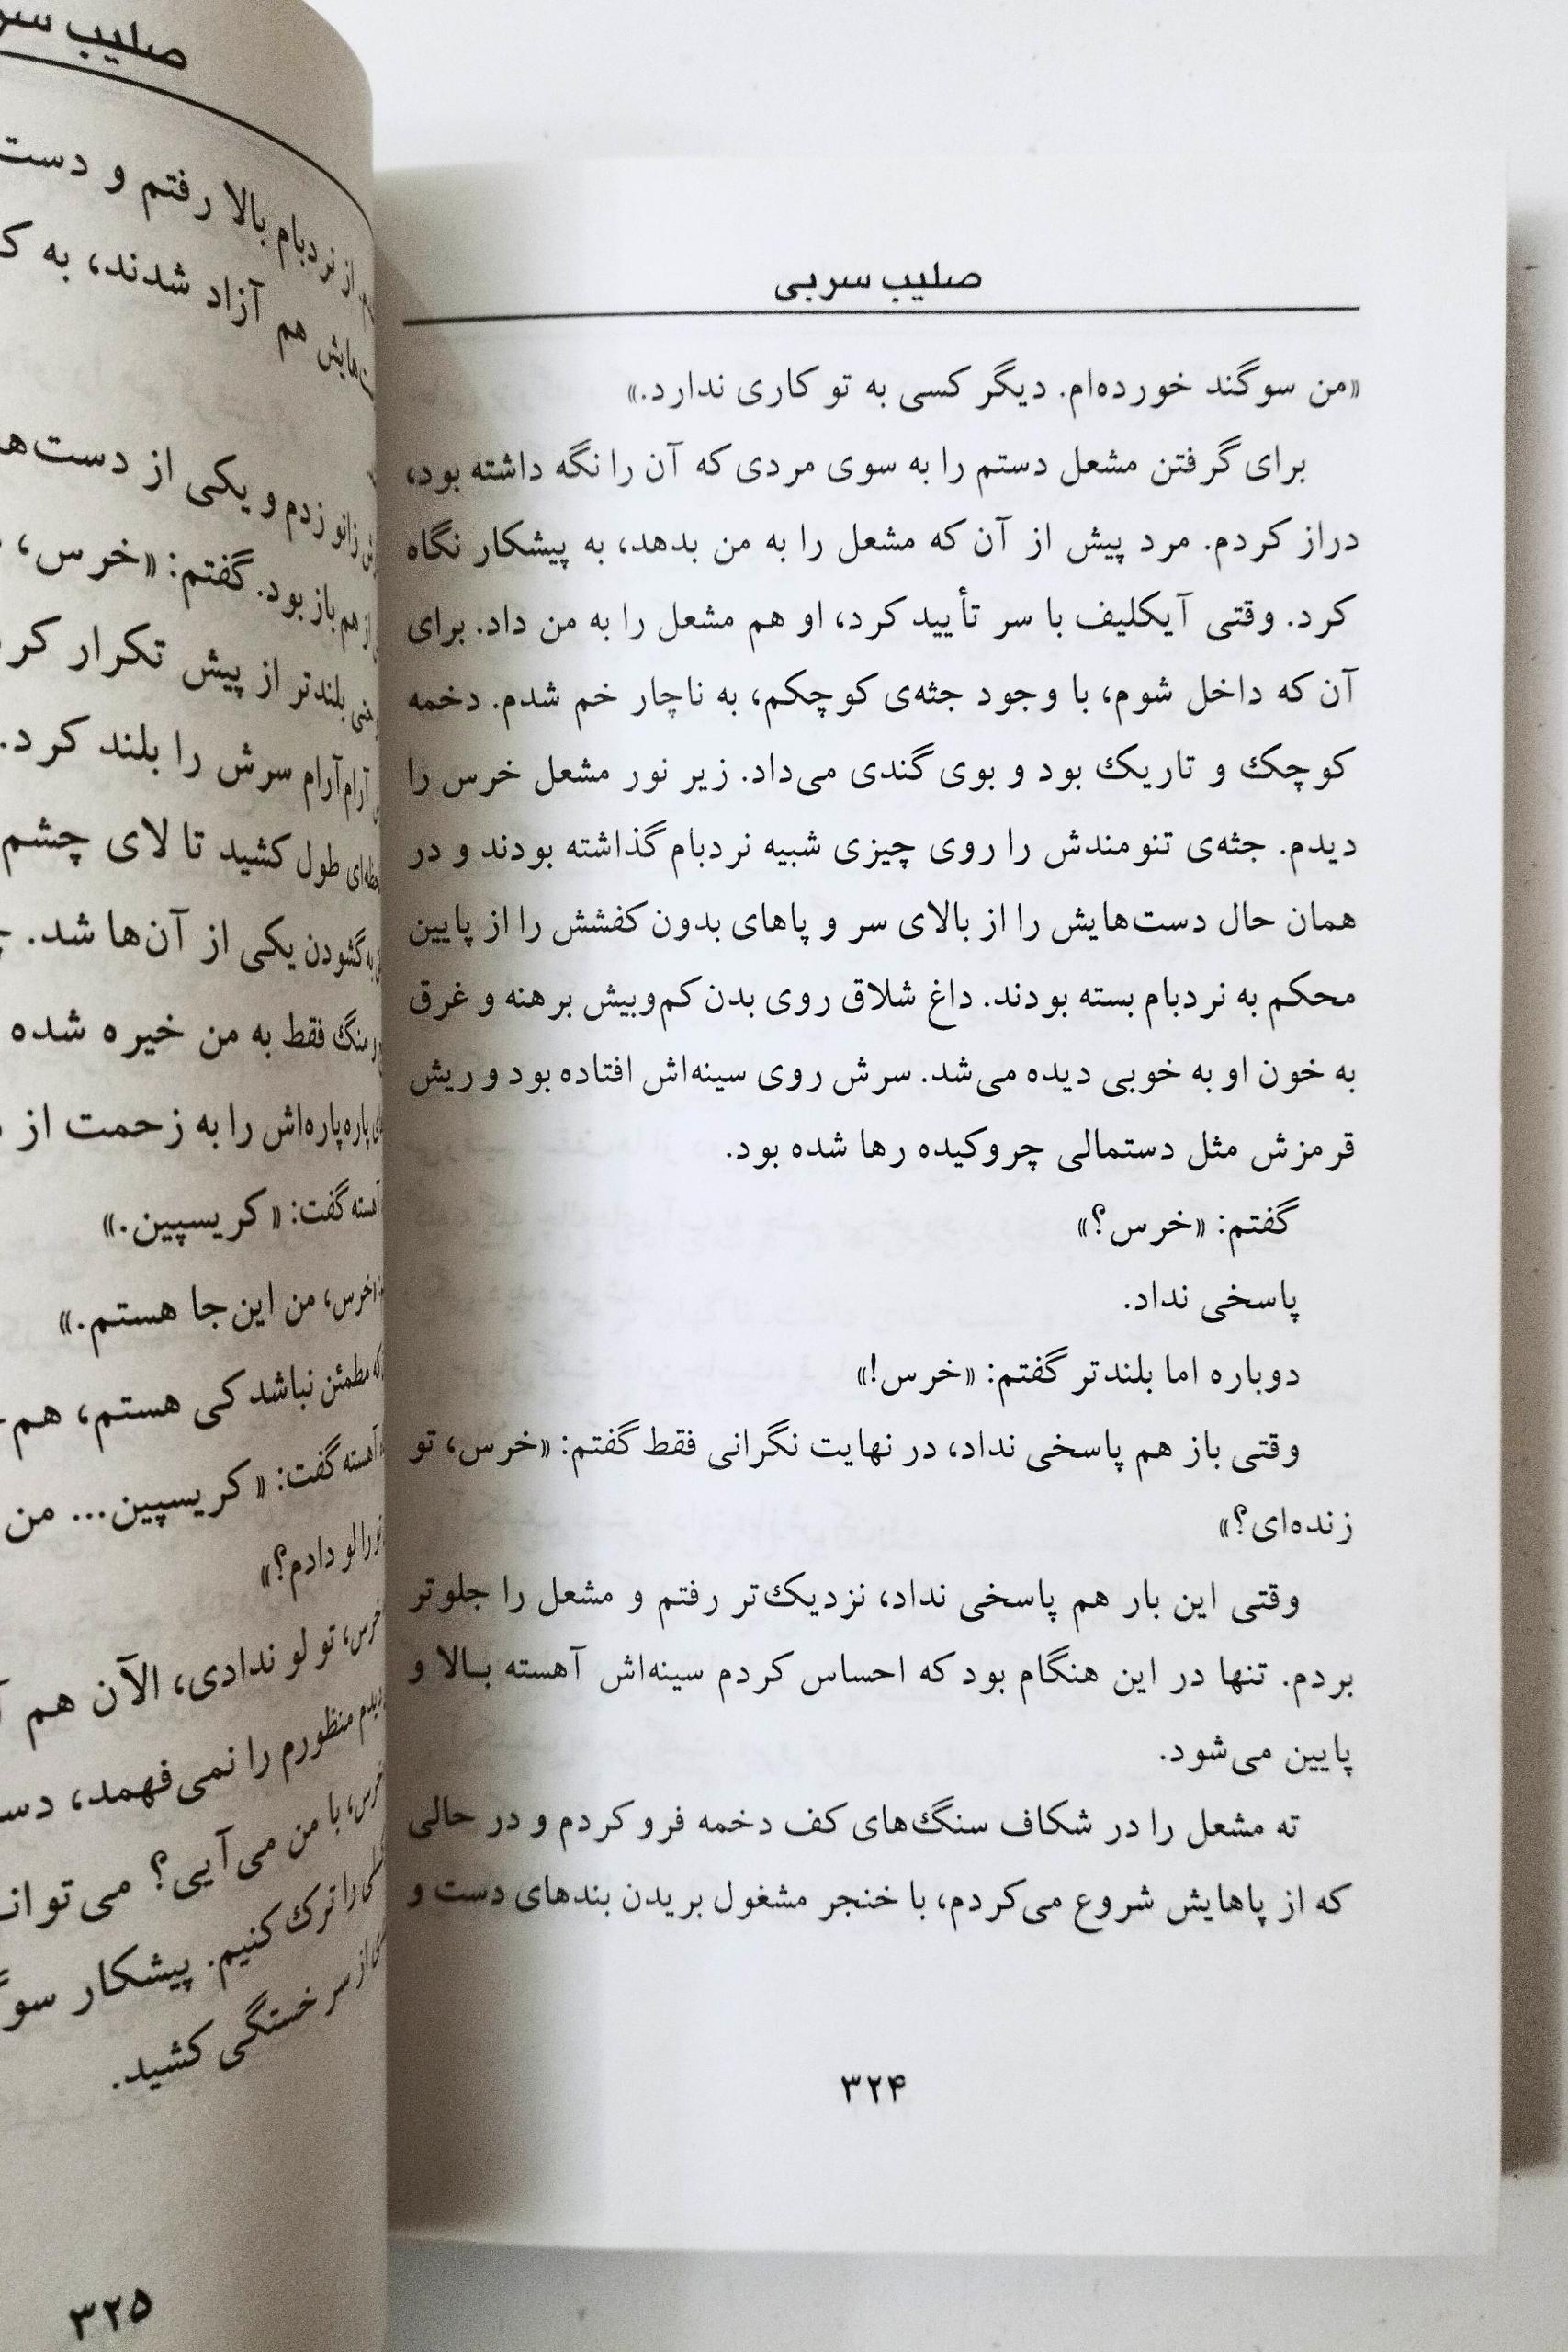 صلیب سربی
«من سوگند خورده‌ام. دیگر کسی به تو کاری ندارد.»
برای گرفتن مشعل دستم را به سوی مردی که آن را نگه داشته بود،
دراز کردم. مرد پیش از آن که مشعل را به من بدهد، به پیشکار نگاه
کرد. وقتی آیکلیف با سر تأیید کرد، او هم مشعل را به من داد. برای
آن که داخل شوم، با وجود جثه‌ی کوچکم، به ناچار خم شدم. دخمه
کوچک و تاریک بود و بوی گندی می‌داد. زیر نور مشعل خرس را
دیدم. جثه‌ی تنومندش را روی چیزی شبیه نردبام گذاشته بودند و در
همان حال دست‌هایش را از بالای سر و پاهای بدون کفشش را از پایین
محکم به نردبام بسته بودند. داغ شلاق روی بدن کم‌وبیش برهنه و غرق
به خون او به خوبی دیده می‌شد. سرش روی سینه‌اش افتاده بود و ریش
قرمزش مثل دستمالی چروکیده رها شده بود.
گفتم: «خرس؟»
پاسخی نداد.
دوباره اما بلندتر گفتم: «خرس!»
وقتی باز هم پاسخی نداد، در نهایت نگرانی فقط گفتم: «خرس، تو
زنده‌ای؟»
وقتی این بار هم پاسخی نداد، نزدیک‌تر رفتم و مشعل را جلوتر
بردم. تنها در این هنگام بود که احساس کردم سینه‌اش آهسته بـالا و
پایین می‌شود.
ته مشعل را در شکاف سنگ‌های کف دخمه فرو کردم و در حالی
که از پاهایش شروع می‌کردم، با خنجر مشغول بریدن بندهای دست و
۳۲۴
صلیب
از نردبام بالا رفتم و دست
هم آزاد شدند، به
زانو زدم و یکی از
از هم باز بود. گفتم: «خرس،
بلندتر از پیش تکرار
آرام‌آرام سرش را بلند کرد.
طول کشید تا لای چشم
گشودن یکی از آن‌ها شد.
منگ فقط به من خیره شده
پاره‌پاره‌اش را به زحمت از
آهسته گفت: «کریسپین.»
خرس، من این‌جا هستم.»
مطمئن نباشد کی هستم،
آهسته گفت: «کریسپین... من
را لو دادم؟»
خرس، تو لو ندادی، الآن هم
منظورم را نمی‌فهمد،
خرس، با من می‌آیی؟
را ترک کنیم. پیشکار
از سر خستگی کشید.
۳۲۵